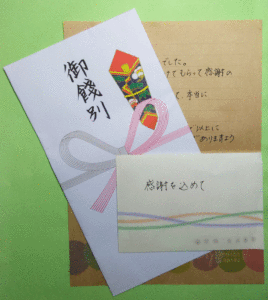 御餞別
でした。
けてもらって感謝の
て、本当に
以上に
ありますよう
感謝を込めて